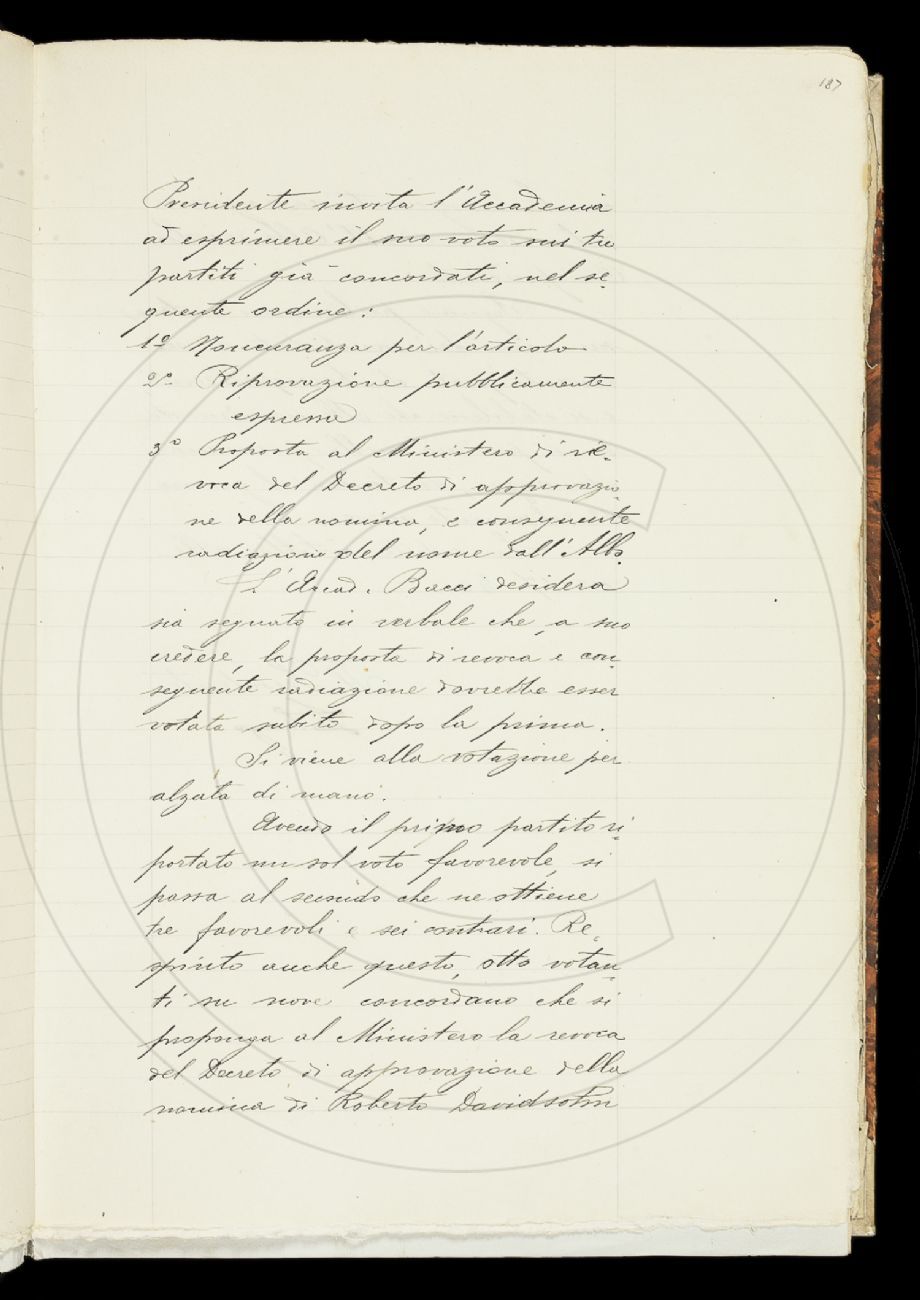 187
Presidente invita l'Accademia
ad esprimere il suo voto sui tre
partiti già concordati, nel se-
guente ordine:
1º Noncuranza per l'articolo
2º Riprovazione pubblicamente
espressa
3º Proposta al Ministero di re-
voca del Decreto di approvazio-
ne della nomina, e conseguente
radiazione del nome dall'Albo.
L'Accad. Bacci desidera
sia segnato in verbale che, a suo
credere, la proposta di revoca e con-
seguente radiazione dovrebbe esser
votata subito dopo la prima.
Si viene alla votazione per
alzata di mano.
Avendo il primo partito ri-
portato un sol voto favorevole, si
passa al secondo che ne ottiene
tre favorevoli e sei contrari. Re-
spinto anche questo, otto votan-
ti su nove concordano che si
proponga al Ministero la revoca
del Decreto di approvazione della
nomina di Roberto Davidsohn